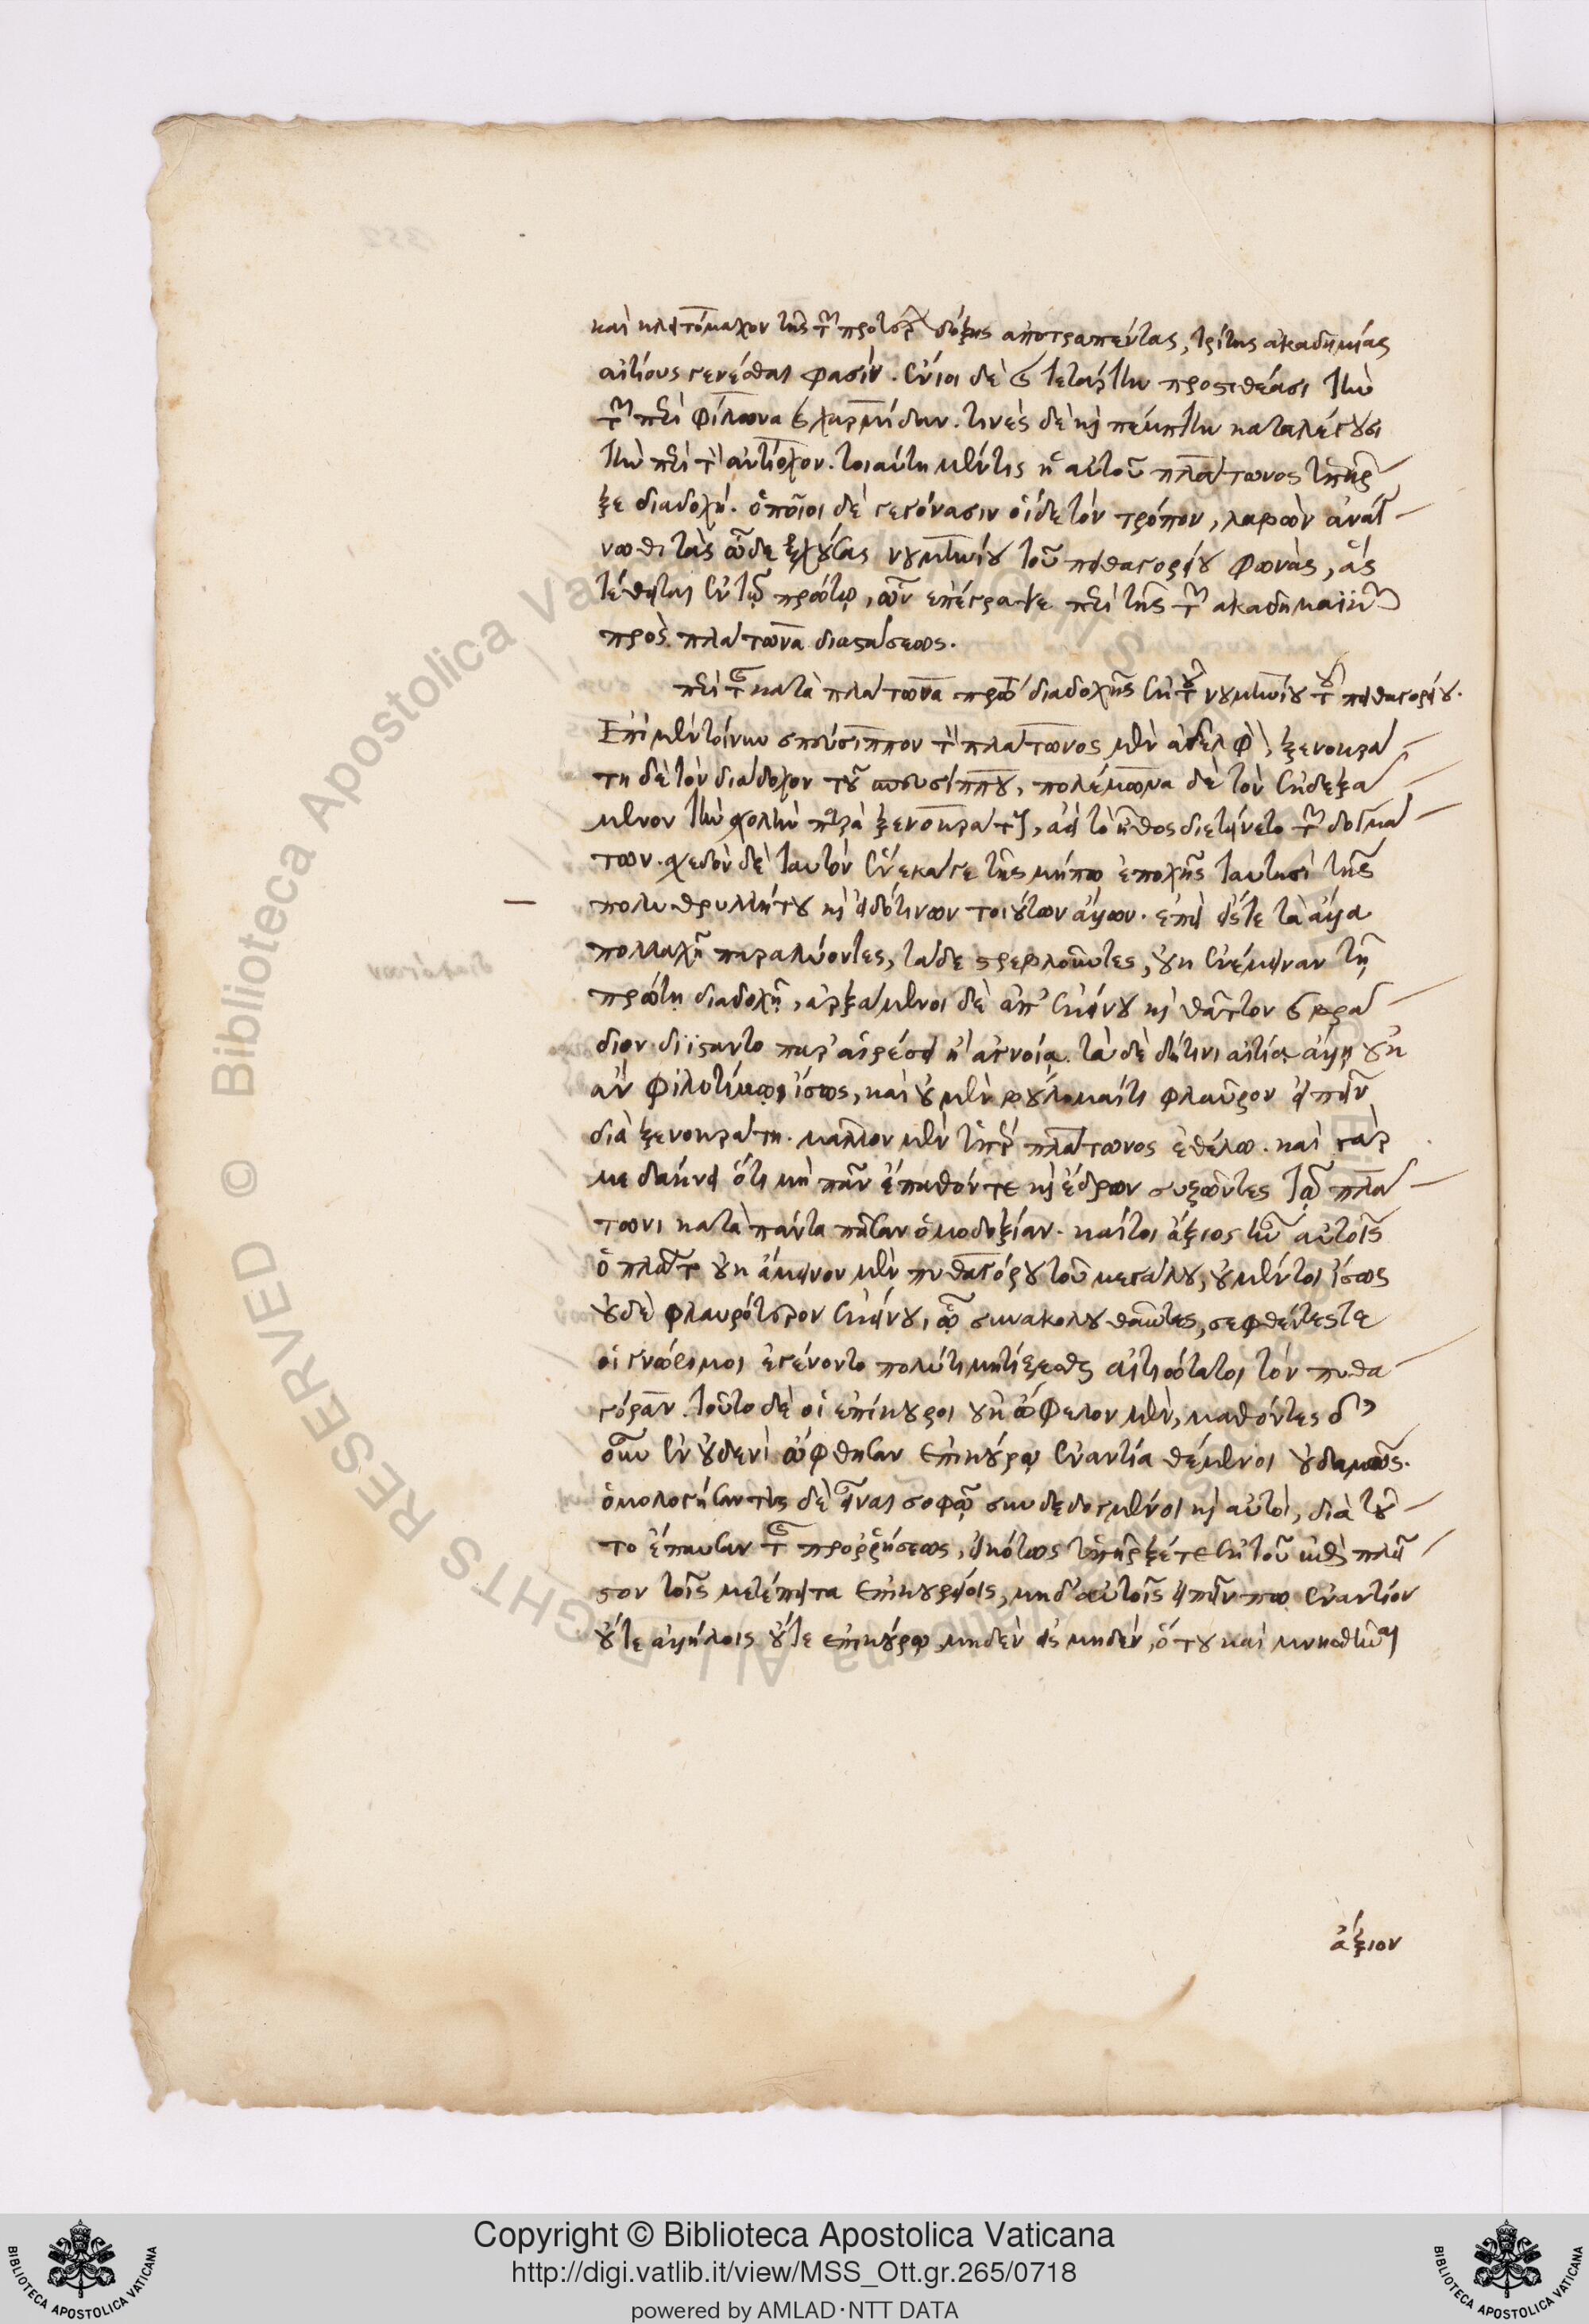 καὶ κλειτόμαχον τῆς τῶν προτέρων δόξης ἀποτραπέντας, τρίτης ἀκαδημίας
αἰτίους γενέσθαι φασίν. ἔνιοι δὲ καὶ τετάρτην προστιθέασι τὴν
τῶν περὶ φίλωνα καὶ χαρμίδαν. τινὲς δὲ καὶ πέμπτην καταλέγουσι
τὴν περὶ τὸν ἀντίοχον. τοιαύτη μέν τις ἡ αὐτοῦ πλάτωνος ὑπῆρ
ξε διαδοχή. ὁποῖοι δὲ γεγόνασιν οἵδε τὸν τρόπον, λαβὼν ἀνά
γνωθι τὰς ὧδε ἐχούσας νουμηνίου τοῦ πυθαγορείου φωνὰς, ἃς
τέθειται ἐν τῷ πρώτῳ, ὧν ἐπέγραψε περὶ τῆς τῶν ἀκαδημαϊκῶν
πρὸς πλάτωνα διαστάσεως.
περὶ τῆς κατὰ πλάτωνα πρώτης διαδοχῆς ἐκ τοῦ νουμηνίου τοῦ πυθαγορείου.
Ἐπὶ μὲν τοίνυν σπεύσιππον τὸν πλάτωνος μὲν ἀδελφιδοῦν, ξενοκρά
τη δὲ τὸν διάδοχον τοῦ σπευσίππου, πολέμωνα δὲ τὸν ἐκδεξά
μενον τὴν σχολὴν παρὰ ξενοκράτους, ἀεὶ τὸ ἦθος διετείνετο τῶν δογμά
των. σχεδὸν δὴ ταυτὸν ἕνεκά γε τῆς μήπω ἐποχῆς ταυτησὶ τῆς
πολυθρυλλήτου καὶ εἰ δότινων τοιούτων ἄλλων. ἐπεὶ εἴς τε τὰ ἄλλα
πολλαχῇ παραλύοντες, τάδε στρεβλοῦντες, οὐκ ἐνέμειναν τῇ
πρώτῃ διαδοχῇ, ἀρξάμενοι δὲ ἀπ' ἐκείνου καὶ θᾶττον καὶ βρά
διον διΐσταντο παρ' αἱρέσει ἢ ἀγνοίᾳ. τὰ δὲ δή τινι αἰτίᾳ ἄλλῃ οὐκ
ἀφιλοτίμῳ ἴσως, καὶ οὐ μὲν βούλομαί τι φλαῦρον εἰπεῖν
διὰ ξενοκράτη. μᾶλλον μὲν ὑπὲρ πλάτωνος ἐθέλω. καὶ γάρ
με δάκνει ὅτι μὴ πᾶν ἔπαθόν τε καὶ ἔδρων σώζοντες τῷ πλά
τωνι κατὰ πάντα πᾶσαν ὁμοδοξίαν. καίτοι ἄξιος ἦν αὐτοῖς
ὁ πλάτων οὐκ ἀμείνων μὲν πυθαγόρου τοῦ μεγάλου, οὐ μέντοι ἴσως
οὐδὲ φλαυρότερον ἐκείνου, ᾧ συνακολουθοῦντες, σεφθέντες τε
οἱ γνώριμοι ἐγένοντο πολυτιμητίζεσθαι αἰτιώτατοι τὸν πυθα
γόραν. τοῦτο δὲ οἱ ἐπίκουροι οὐκ ὤφελον μὲν, μαθόντες δ'
οὖν ἐν οὐδενὶ ὤφθησαν ἐπικούρῳ ἐναντία θέμενοι οὐδαμῶς.
ὁμολογήσαντες δὲ εἶναι σοφῷ συνδεδογμένοι καὶ αὐτοὶ, διὰ τοῦ
το ἔπαυσαν τῆς προρρήσεως, εἰκότως ὑπῆρξέ τε ἐκ τοῦ ἐπὶ πλεῖ
στον τοῖς μετέπειτα ἐπικουρείοις, μηδ' αὐτοῖς εἰπεῖν πω ἐναντίον
οὔτε ἀλλήλοις οὔτε ἐπικούρῳ μηδὲν εἰς μηδὲν, ὅτου καὶ μνησθῆναι
ἄξιον
Copyright © Biblioteca Apostolica Vaticana
http://digi.vatlib.it/view/MSS_Ott.gr.265/0718
powered by AMLAD·NTT DATA